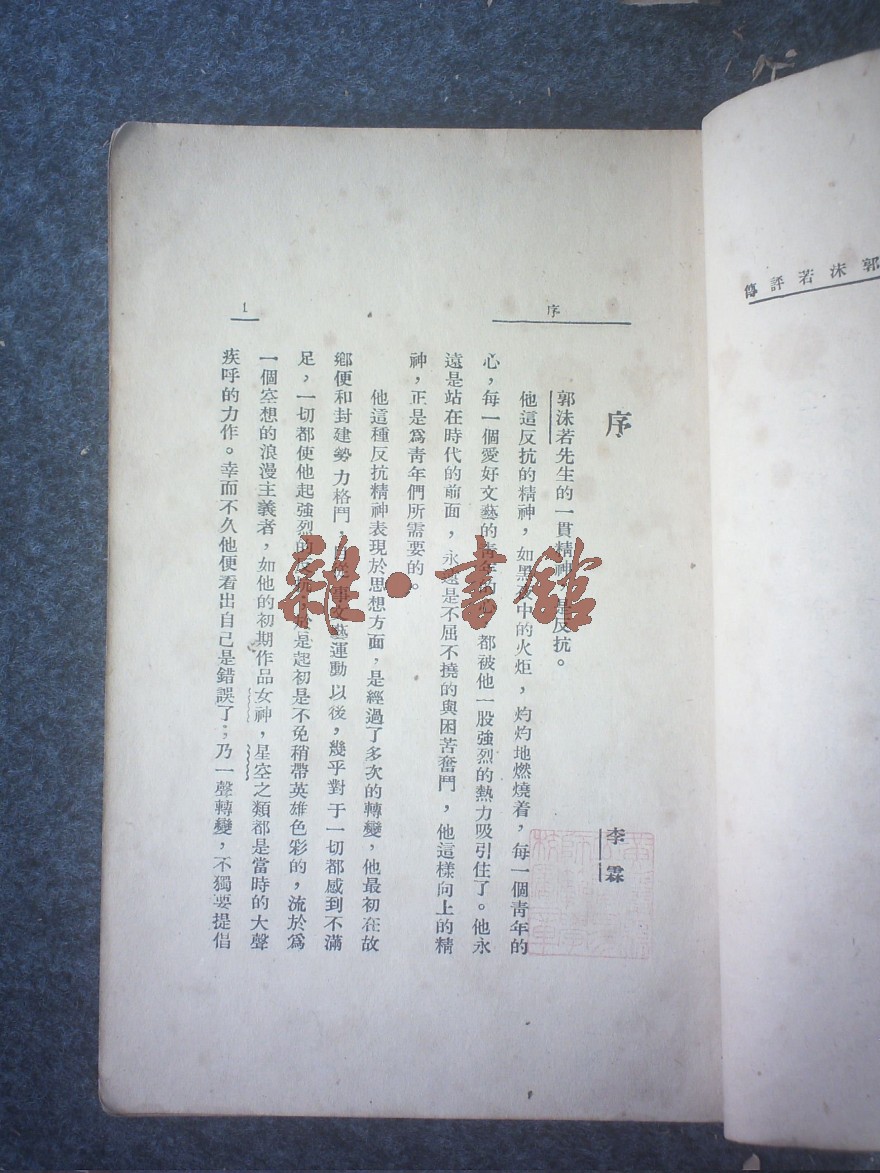 郭沫若評傳
序
1
序
李霖
郭沫若先生的一貫精神是反抗。
他這反抗的精神，如黑夜中的火炬，灼灼地燃燒着，每一個靑年的
心，每一個愛好文藝的靑年的心，都被他一股強烈的熱力吸引住了。他永
遠是站在時代的前面，永遠是不屈不撓的與困苦奮鬥，他這樣向上的精
神，正是爲靑年們所需要的。
他這種反抗精神表現於思想方面，是經過了多次的轉變，他最初在故
鄉便和封建勢力格鬥，自從事文藝運動以後，幾乎對于一切都感到不滿
足，一切都使他起強烈的反抗，於是起初是不免稍帶英雄色彩的，流於爲
一個空想的浪漫主義者，如他的初期作品女神，星空之類都是當時的大聲
疾呼的力作。幸而不久他便看出自己是錯誤了；乃一聲轉變，不獨要提倡
雜·書館